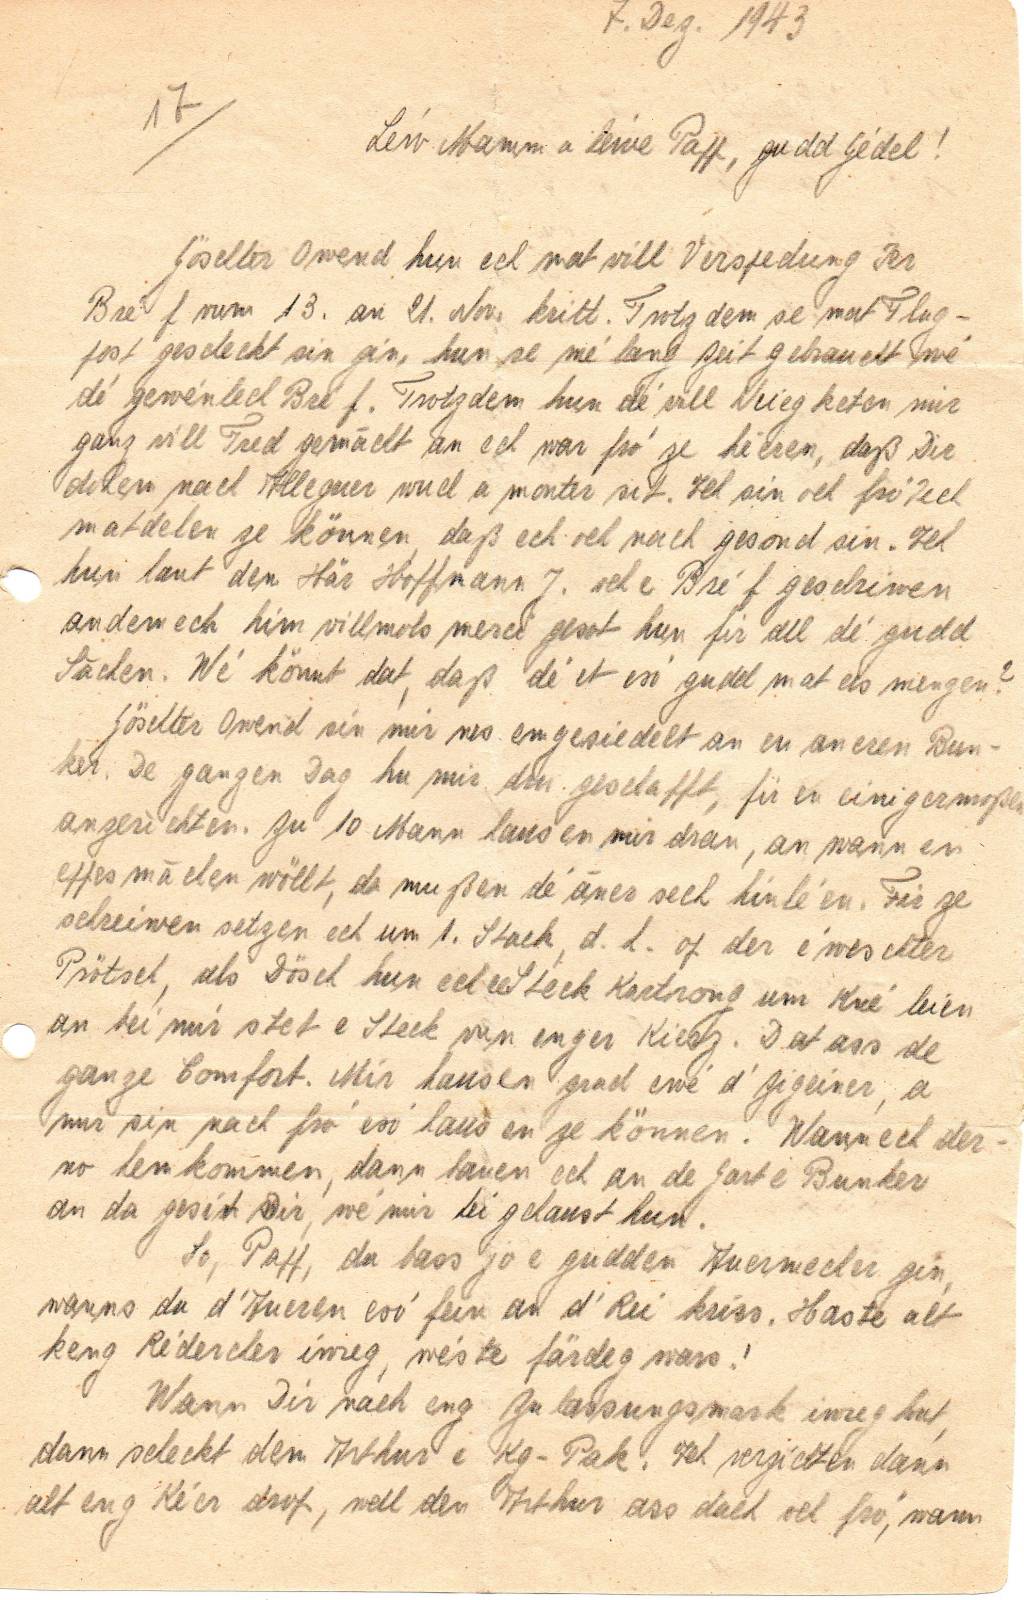 7. Dez. 1943
17/
Léiv Mamm a léive Paff, gudd Gédel!
Göschter Owend hun ech mat vill Verspedung Ier
Bréf vum 13. an 21. Nov. kritt. Trotzdem se mat Flug-
post gescheckt sin gin, hun se mé lang Zeit gebraucht wé
dé gewénlech Bréf. Trotzdem hun dé vill Neiegketen mir
ganz vill Fred gemācht an ech war fró ze héeren, daß Dir
dohem nach Alleguer wuel a monter sit. Ech sin och fró Iech
matdelen ze können, daß ech och nach gesond sin. Ech
hun haut dem Här Hoffmann J. och e Bréf geschriwen
an dem ech him villmols merci gesot hun fir all dé gudd
Sāchen. Wé könnt dat, daß dé et esó gudd mat eis mengen?
Göschter Owend sin mir nes emgesiedelt an en aneren Bun-
ker. De ganzen Dag hu mir dru geschafft, fir en einigermoßen
anzeriichten. Zu 10 Mann hausen mir dran, an wann en
eppes māchen wöllt, da mußen dé āner sech hinléen. Fir ze
schreiwen setzen ech um 1. Stack, d. h. op der éweschter
Prötsch, als Dösch hun ech e Steck Kartrong um Kné leien
an béi mir stet e Steck vun enger Kierz. Dat ass de
ganze Comfort. Mir hausen grad ewé d' Zigeiner, a
mir sin nach fró esó hausen ze können. Wann ech der-
no hemkommen, dann bauen ech an de Gart e Bunker
an da gesit Dir, wé mir hei gehaust hun.
So, Paff, du bass jo e gudden Auermecher gin,
wanns du d'Aueren esó fein an d' Rei kriss. Haste alt
keng Rédercher iwreg, wéste färdeg wars!
Wann Dir nach eng Zulassungsmark iwreg hut,
dann scheckt dem Arthur e Kg-Pak. Ech verziichten dann
alt eng Kéer drop, well den Arthur ass dach och fró, wann